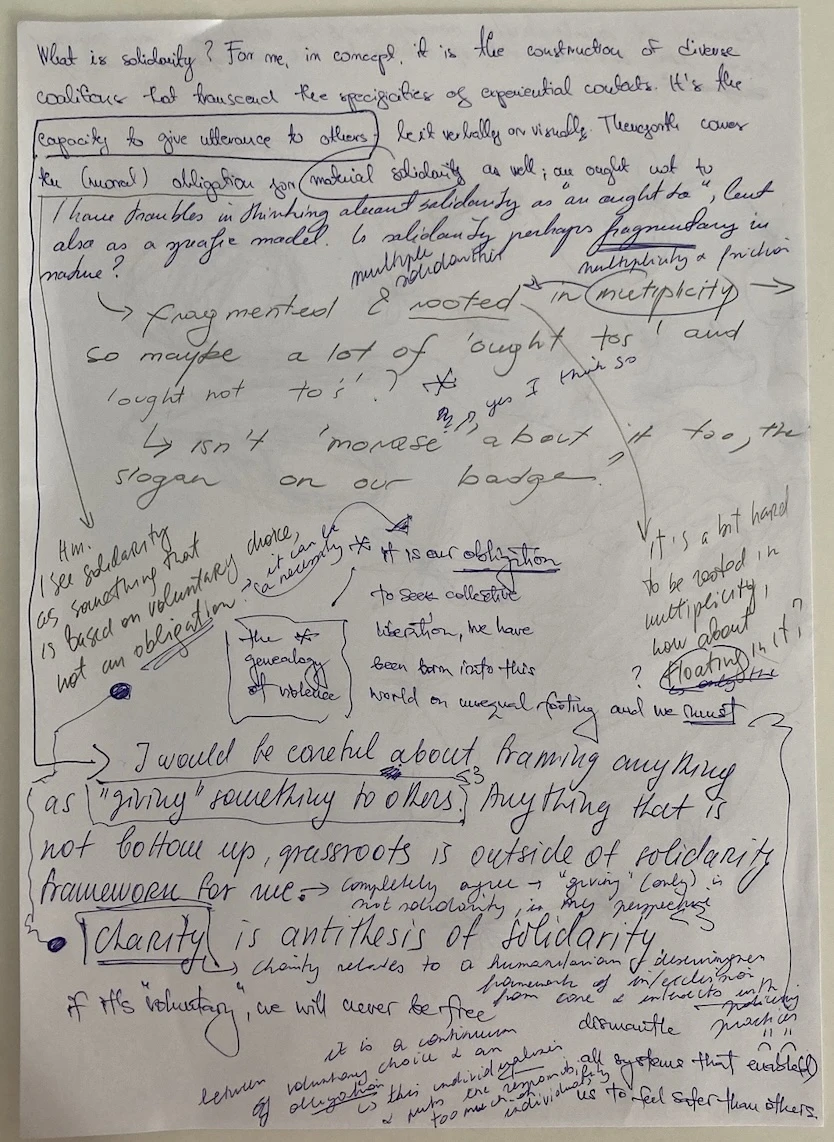 What is solidarity? For me, in concept, it is the construction of diverse
coalitions that transcend the specificities of experiential contexts. It's the
capacity to give utterance to others, be it verbally or visually. Thenceforth comes
the (moral) obligation for material solidarity as well; one ought not to
I have troubles in thinking about solidarity as "an ought to", but
also as a specific model. Is solidarity perhaps fragmentary in
nature?
multiple
solidarities
multiplicity & friction
↳ fragmented & rooted in multiplicity →
so maybe a lot of 'ought tos' and
'ought not to's'? *
yes I think so
↳ isn't 'morase' about it too, the
slogan on our badge?
Hm.
I see solidarity
as something that
is based on voluntary choice,
not an obligation.
it can be
a necessity
* it is our obligation
to seek collective
liberation, we have
been born into this
world on unequal footing and we must
the *
genealogy
of violence
it's a bit hard
to be rooted in
multiplicity,
how about
floating in it?
?
I would be careful about framing anything
as "giving" something to others. Anything that is
not bottom up, grassroots is outside of solidarity
framework for me. → completely agree → "giving" (only) is
not solidarity, in my perspective
<3
charity is antithesis of solidarity
↳ charity relates to a humanitarian & deservingness
framework of in/exclusion
from care & interacts with
policing
practices
if it's "voluntary", we will never be free
dismantle
all systems that enable(d)
us to feel safer than others.
it is a continuum
between voluntary choice & an
obligation
↳ this individualizes
& puts the responsibility
too much on
individuals